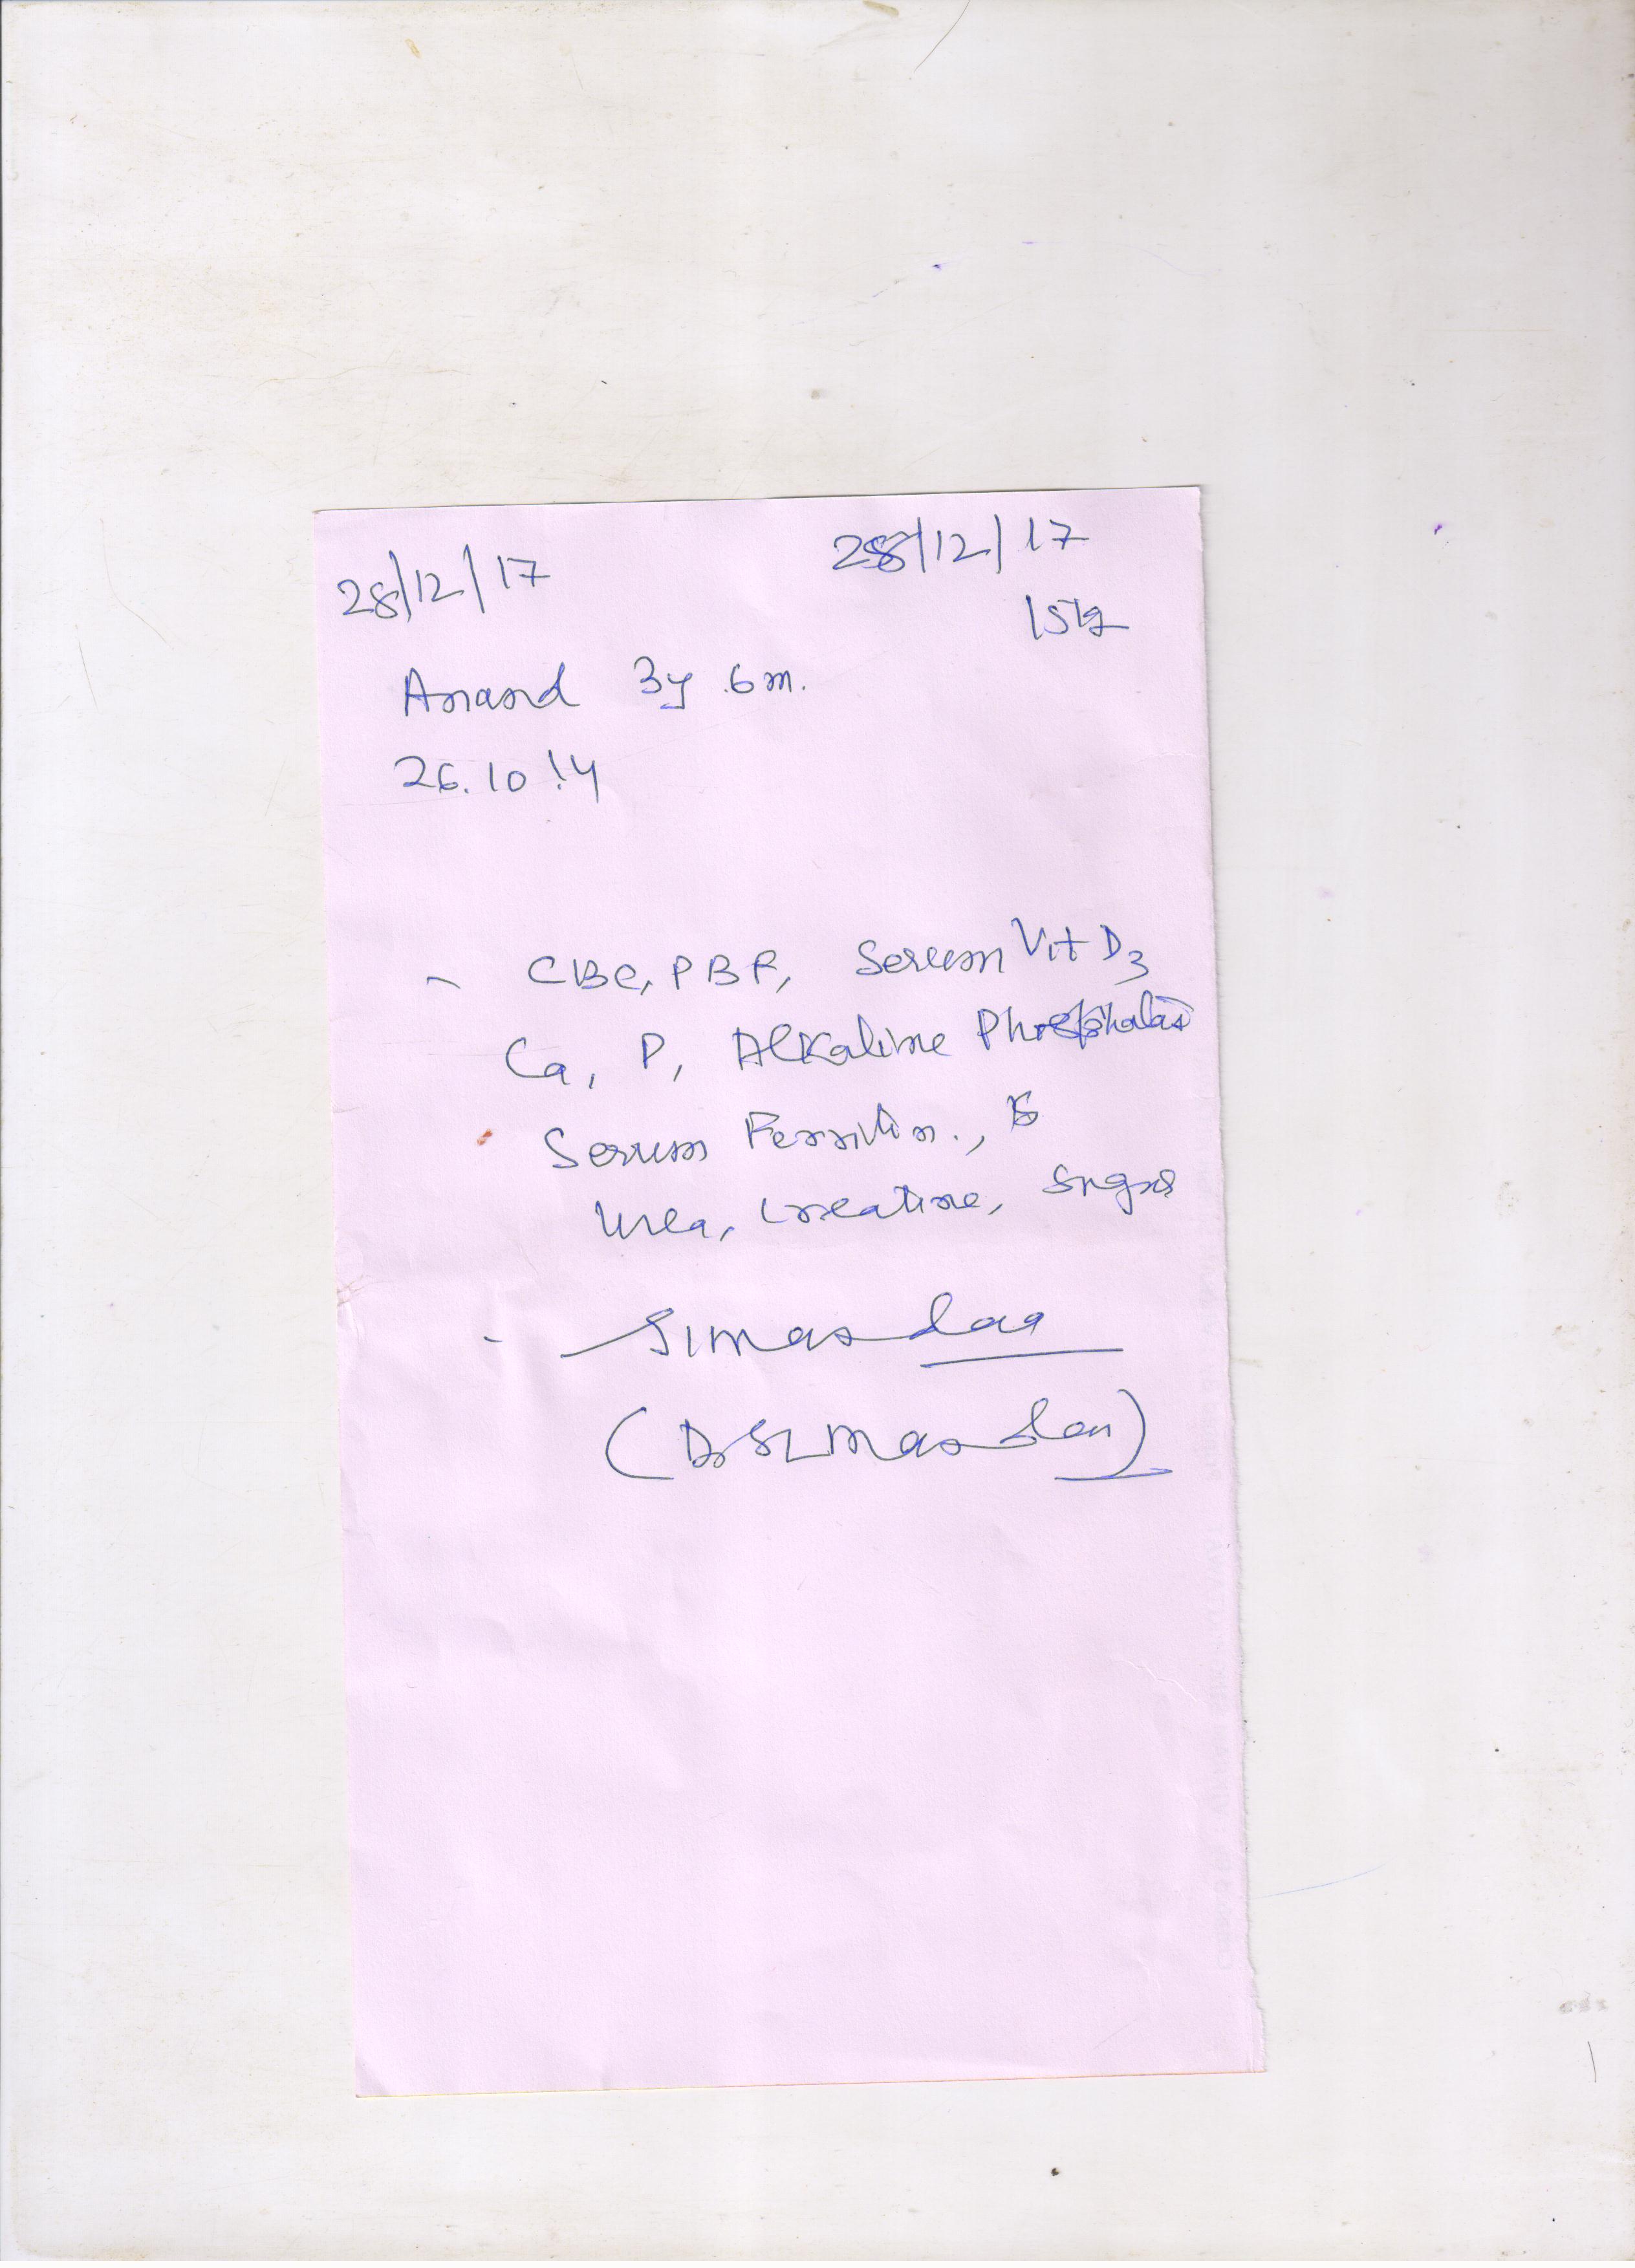 28/12/17 28/12/17
15kg
Anand 3y 6m.
26.10.14
- CBC, PBF, Serum Vit D3
Ca, P, Alkaline Phosphatas
Serum Ferritin.,
Urea, Creatine, Sugar
-
(Dr